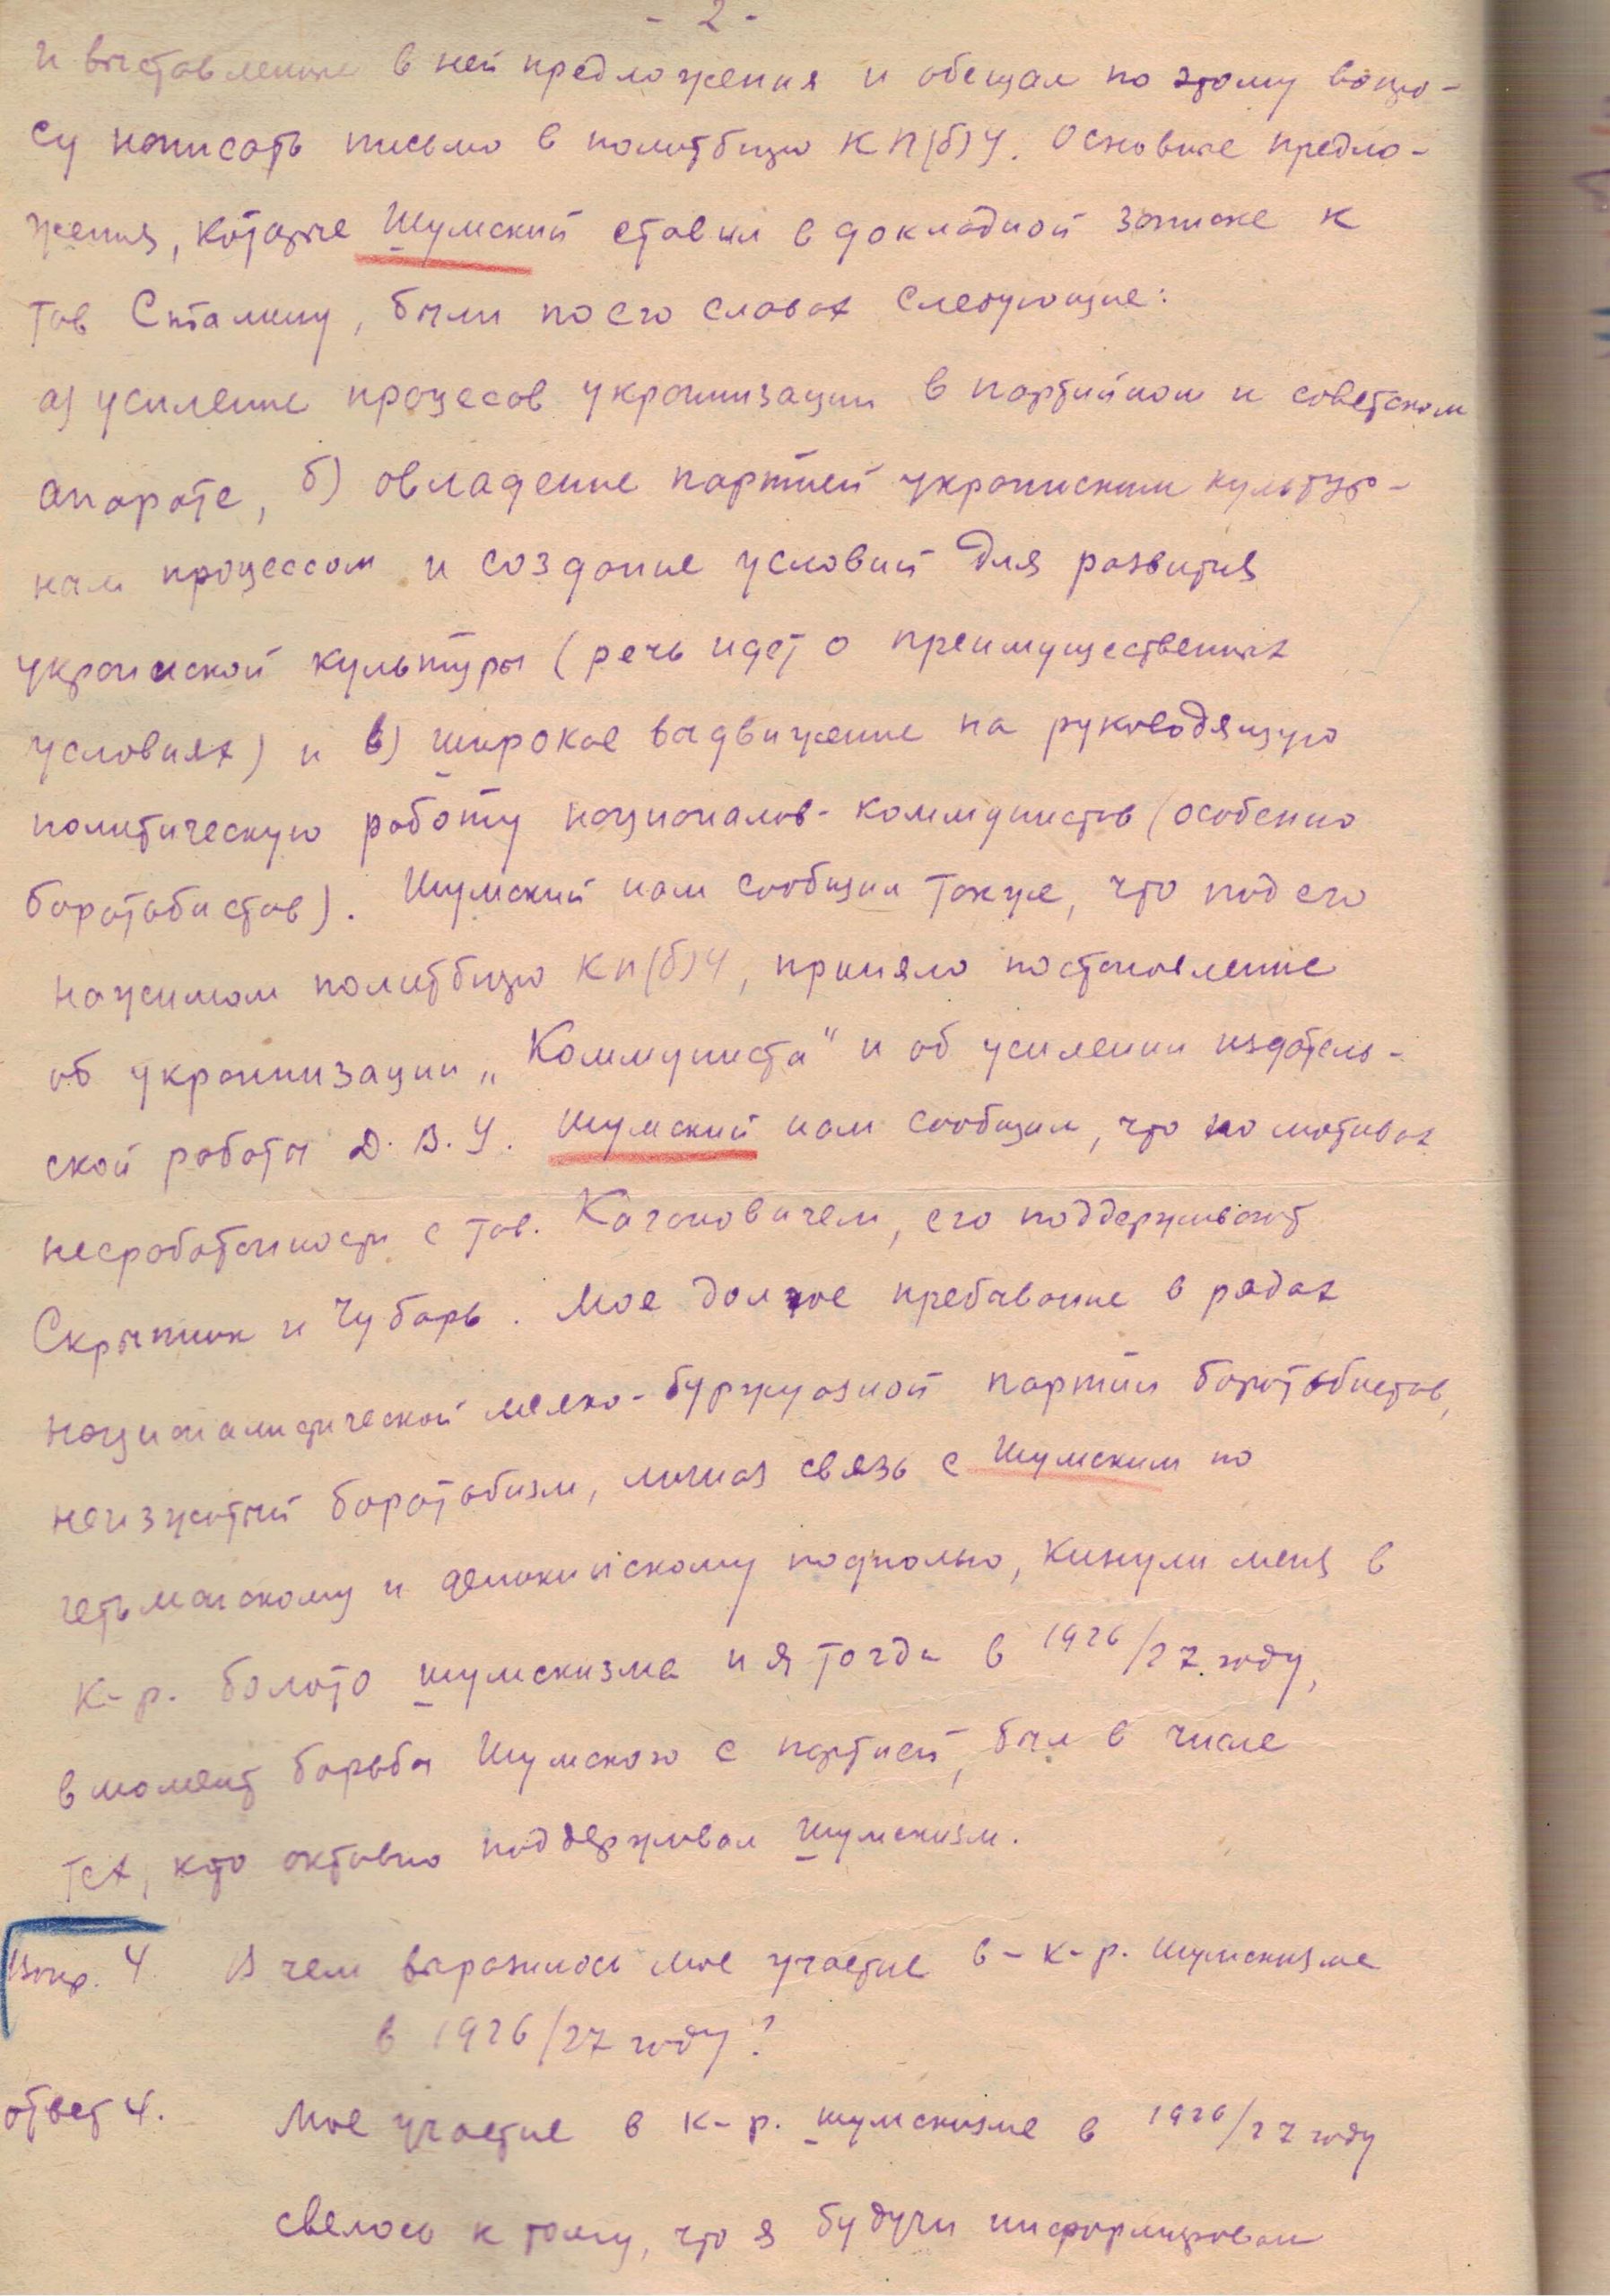 - 2 -
и выставленные в ней предложения и обещал по этому вопро-
су написать письмо в политбюро КП(б)У. Основные предло-
жения, которые Шумский ставил в докладной записке к
тов Сталину, были по его словах следующие:
а) усиление процесов украинизации в партийном и советском
апарате, б) овладение партией украинским культур-
ным процессом и создание условий для развития
украинской культуры (речь идет о преимущественных
условиях) и в) широкое выдвижение на руководящую
политическую работу националов-коммунистов (особенно
боротьбистов). Шумский нам сообщил также, что под его
нажимом политбюро КП(б)У, приняло постановление
об украинизации „Коммуниста" и об усилении издатель-
ской работы Д.В.У. Шумский нам сообщил, что по мотивах
несработанности с тов. Кагановичем, его поддерживают
Скрыпник и Чубарь. Мое долгое пребывание в рядах
националистической мелко-буржуазной партии боротьбистов,
неизжитый боротьбизм, личная связь с Шумским по
гетьманскому и деникинскому подполью, кинули меня в
к-р. болото шумскизма и я тогда в 1926/27 году,
в момент борьбы Шумского с партией, был в числе
тех, кто активно поддерживал шумскизм.
Вопр. 4 В чем выразилось мое участие в-к-р. шумскизме
в 1926/27 году?
ответ 4. Мое участие в к-р. шумскизме в 1926/27 году
свелось к тому, что я будучи информирован